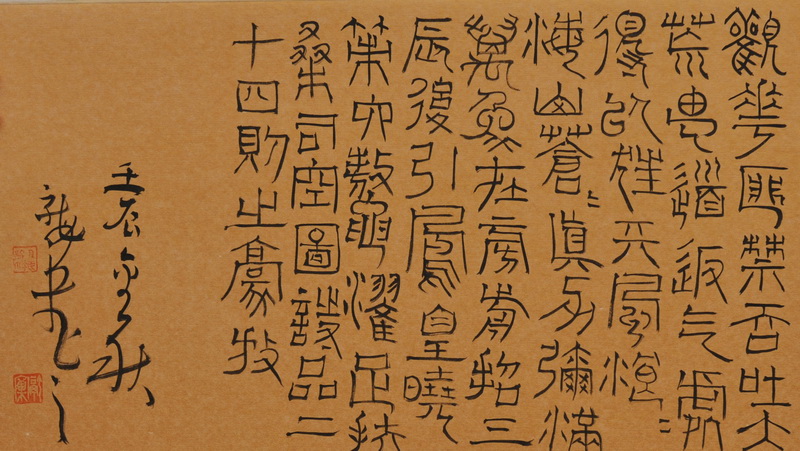 觀華匪禁吞吐大
荒由道返气處
得以狂天風浪〻
海山蒼〻真力彌滿
萬象在旁前招三
辰後引鳳皇曉
策六鰲濯足扶
桑司空圖詩品二
十四則之豪放
壬辰金秋